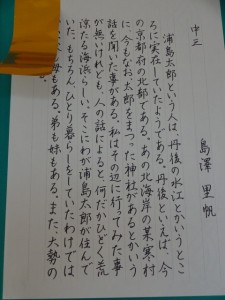 中三
島澤里帆
浦島太郎という人は、丹後の水江とかいうとこ
ろに実在していたようである。丹後といえば、今
の京都府の北部である。あの北海岸の某寒村
に今もなお、太郎をまつった神社があるとかいう
話を聞いた事がある。私はその辺に行ってみた事
が無いけれども、人の話によると、何だかひどく荒
涼たる海浜らしい。そこにわが浦島太郎が住んで
いた。もちろん、ひとり暮らしをしていたわけでは
母もある。弟も妹もある。また、大勢の